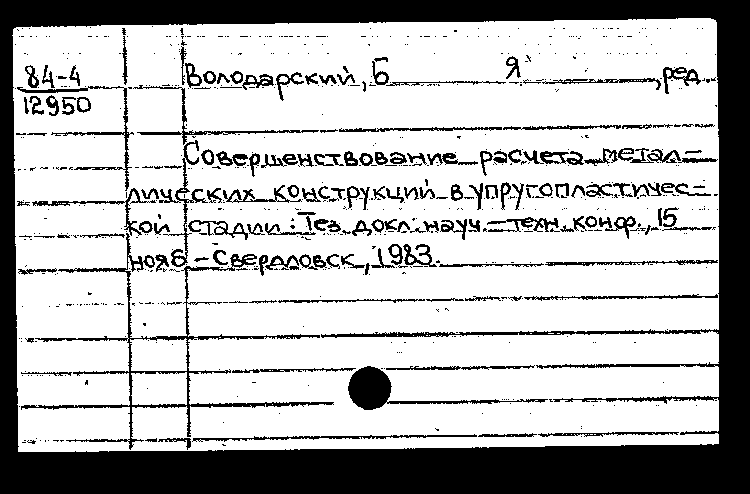 84-4
12950
Володарский, Б Я , ред
Совершенствование расчета метал-
лических конструкций в упругопластичес-
кой стадии: Тез. докл. науч.-техн. конф., 15
нояб - Свердловск, 1983.